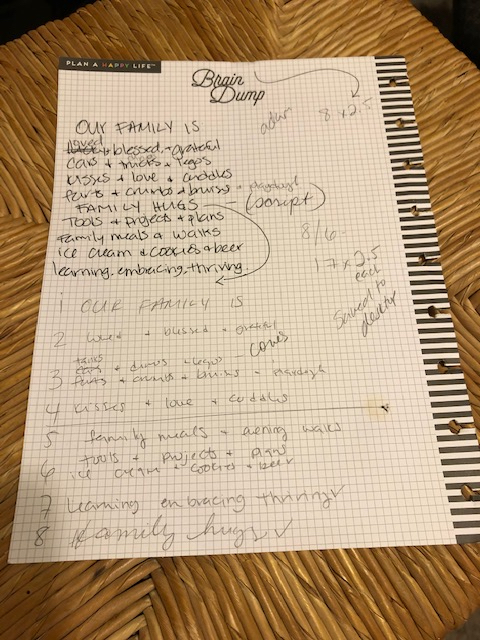 PLAN A HAPPY LIFE™
Brain
Dump
8 x 2.5
OUR FAMILY IS
loved
+ blessed + grateful
cars + trucks + legos
kisses + love + cuddles
farts + crumbs + bruises + playdogh
FAMILY HUGS — (script)
Tools + projects + plans
family meals + walks
ice cream + cookies + beer
learning, embracing, thriving
8/6
17 x 2.5
each
Saved to
desktop
1 OUR FAMILY IS
2 loved + blessed + grateful
cones
trucks
3 cars + dumps + legos
farts + crumbs + bruises + playdogh
4 kisses + love + cuddles
5 family meals + evening walks
6 tools + projects + plans
ice cream + cookies + beer
7 learning embracing thriving
8 family hugs